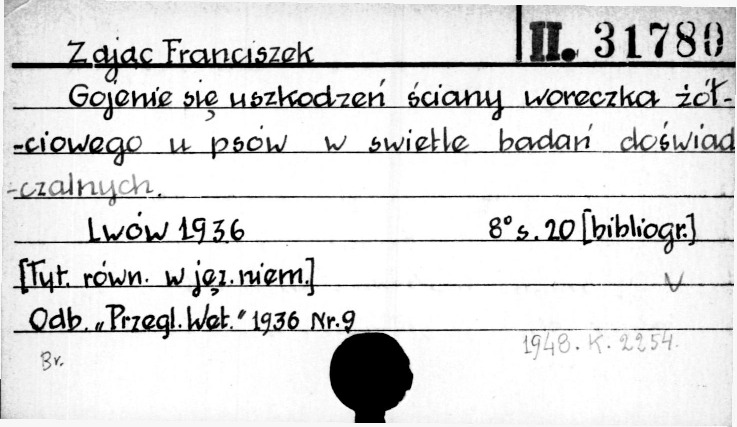 Zając Franciszek II. 31780
Gojenie się uszkodzeń ściany woreczka żół-
-ciowego u psów w swietle badań doświad
-czalnych.
Lwów 1936 8° s. 20 [bibliogr.]
[Tyt. równ. w jęz. niem.]
Odb. „Przegl. Wet." 1936 Nr. 9
1948. K. 2254.
Br.